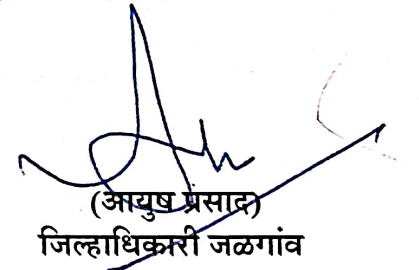 (आयुष प्रसाद)
जिल्हाधिकारी जळगांव